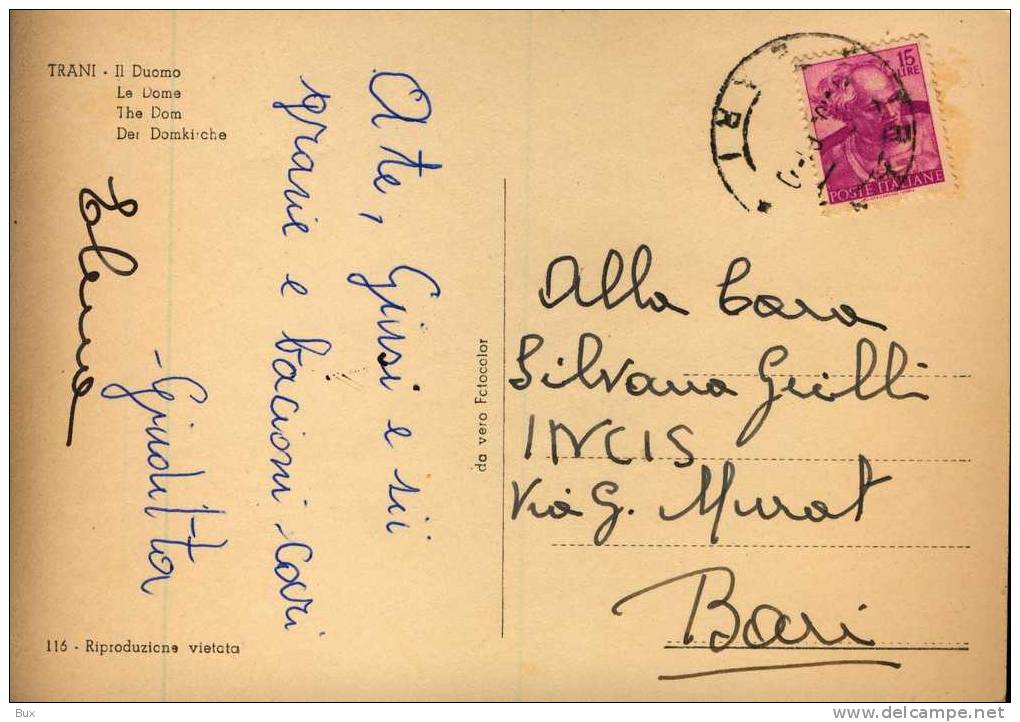 TRANI - Il Duomo
Le Dome
The Dom
Der Domkirche
A te, Giusi e sii
grazie e bacioni cari
- Giuditta
da vero Fotocolor
15
LIRE
POSTE ITALIANE
Alla Cara
Silvana Grilli
INCIS
Via G. Murat
Bari
116 - Riproduzione vietata
Bux
www.delcampe.net